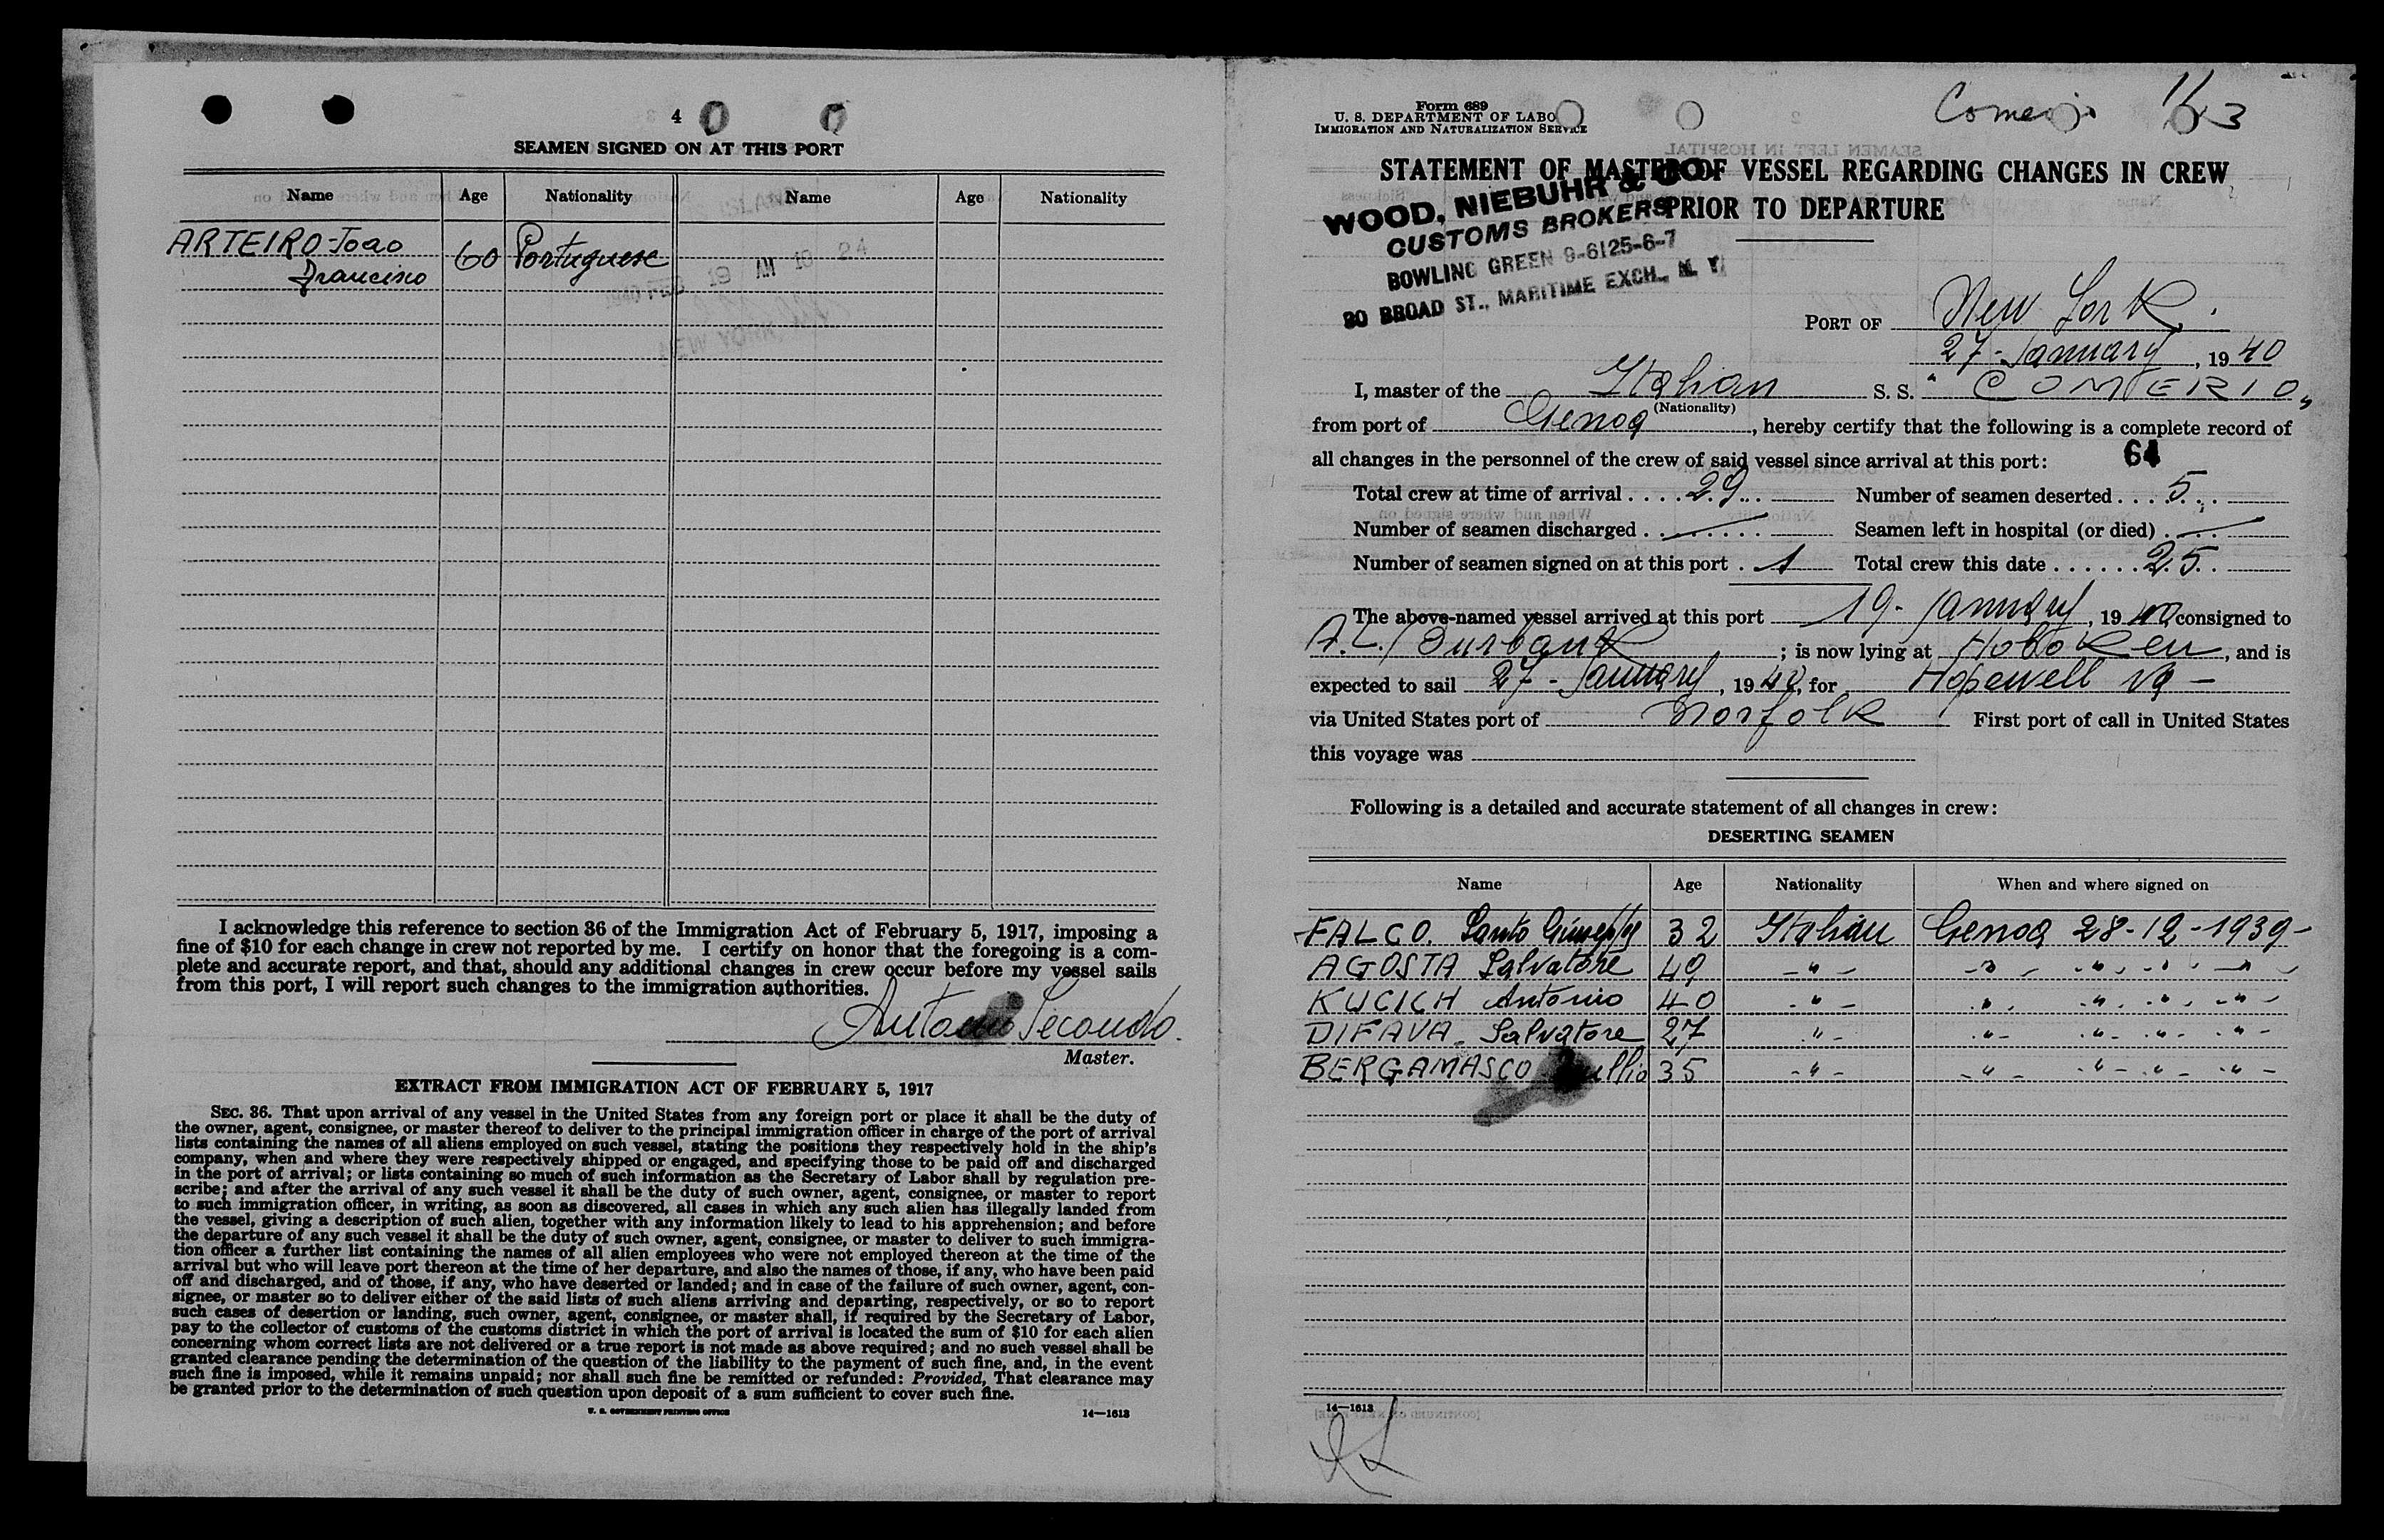 4
SEAMEN SIGNED ON AT THIS PORT
Name Age Nationality Name Age Nationality
ARTEIRO-Joao
Francisco 60 Portuguese
I acknowledge this reference to section 36 of the Immigration Act of February 5, 1917, imposing a
fine of $10 for each change in crew not reported by me. I certify on honor that the foregoing is a com-
plete and accurate report, and that, should any additional changes in crew occur before my vessel sails
from this port, I will report such changes to the immigration authorities.
Secondo.
Master.
EXTRACT FROM IMMIGRATION ACT OF FEBRUARY 5, 1917
SEC. 36. That upon arrival of any vessel in the United States from any foreign port or place it shall be the duty of
the owner, agent, consignee, or master thereof to deliver to the principal immigration officer in charge of the port of arrival
lists containing the names of all aliens employed on such vessel, stating the positions they respectively hold in the ship's
company, when and where they were respectively shipped or engaged, and specifying those to be paid off and discharged
in the port of arrival; or lists containing so much of such information as the Secretary of Labor shall by regulation pre-
scribe; and after the arrival of any such vessel it shall be the duty of such owner, agent, consignee, or master to report
to such immigration officer, in writing, as soon as discovered, all cases in which any such alien has illegally landed from
the vessel, giving a description of such alien, together with any information likely to lead to his apprehension; and before
the departure of any such vessel it shall be the duty of such owner, agent, consignee, or master to deliver to such immigra-
tion officer a further list containing the names of all alien employees who were not employed thereon at the time of the
arrival but who will leave port thereon at the time of her departure, and also the names of those, if any, who have been paid
off and discharged, and of those, if any, who have deserted or landed; and in case of the failure of such owner, agent, con-
signee, or master so to deliver either of the said lists of such aliens arriving and departing, respectively, or so to report
such cases of desertion or landing, such owner, agent, consignee, or master shall, if required by the Secretary of Labor,
pay to the collector of customs of the customs district in which the port of arrival is located the sum of $10 for each alien
concerning whom correct lists are not delivered or a true report is not made as above required; and no such vessel shall be
granted clearance pending the determination of the question of the liability to the payment of such fine, and, in the event
such fine is imposed, while it remains unpaid; nor shall such fine be remitted or refunded: Provided, That clearance may
be granted prior to the determination of such question upon deposit of a sum sufficient to cover such fine.
U. S. GOVERNMENT PRINTING OFFICE 14—1613
Form 689
U. S. DEPARTMENT OF LABOR
IMMIGRATION AND NATURALIZATION SERVICE
STATEMENT OF MASTER OF VESSEL REGARDING CHANGES IN CREW
PRIOR TO DEPARTURE
WOOD, NIEBUHR & CO.
CUSTOMS BROKERS
BOWLING GREEN 9-6125-6-7
80 BROAD ST., MARITIME EXCH., N. Y.
PORT OF New York.
27-January, 1940
I, master of the Italian S. S. "COMERIO"
(Nationality)
from port of Genoa, hereby certify that the following is a complete record of
all changes in the personnel of the crew of said vessel since arrival at this port: 64
Total crew at time of arrival .... 29 Number of seamen deserted ... 5
Number of seamen discharged ....... — Seamen left in hospital (or died) .... —
Number of seamen signed on at this port . 1 Total crew this date ...... 25
The above-named vessel arrived at this port 19-January, 1940, consigned to
A.L. Burbank; is now lying at Hoboken, and is
expected to sail 27-January, 1940, for Hopewell Va-
via United States port of Norfolk First port of call in United States
this voyage was
Following is a detailed and accurate statement of all changes in crew:
DESERTING SEAMEN
Name Age Nationality When and where signed on
FALCO. Santo Giuseppe 32 Italian Genoa 28-12-1939-
AGOSTA Salvatore 49 -"- -"- -"- -"- -"-
KUCICH Antonio 40 -"- -"- -"- -"- -"-
DIFAVA. Salvatore 27 "- "- "- "- "-
BERGAMASCO 35 -"- -"- -"- -"- -"-
14—1613